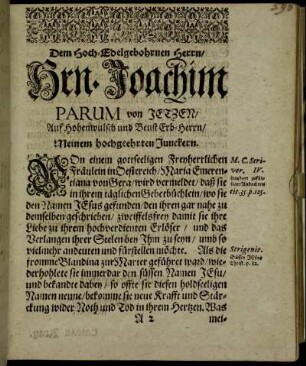 Dem Hoch-Edelgebohrnen Herrn/
Hrn. Joachim
PARUM von JETZEN/
Auf Hohenwulsch und Beust Erb-Herrn/
Meinem hochgeehrten Junckern.
VOn einem gottseeligen Freyherrlichen
Fräulein in Oestereich/Maria Emeren-
tiana von Gera/wird vermeldet/daß sie
in ihrem täglichen Gebetbüchlein/wo sie
den Namen JEsus gefunden/den ihren gar nahe zu
demselben geschrieben/zweiffelsfrey damit sie ihre
Liebe zu ihrem hochverdienten Erlöser/und das
Verlangen ihrer Seelen bey Ihm zu seyn/umb so
vielmehr andeuten und fürstellen möchte. Als die
fromme Blandina zur Marter geführet ward/wie-
derhohlete sie immerdar den süssen Namen JEsu/
und bekandte dabey/so offte sie diesen holdseeligen
Namen nenne/bekomme sie neue Krafft und Stär-
ckung wider Noth und Tod in ihrem Hertzen. Was
A 2 mei-
M. C. Scri-
ver. IV.
Strigenic.